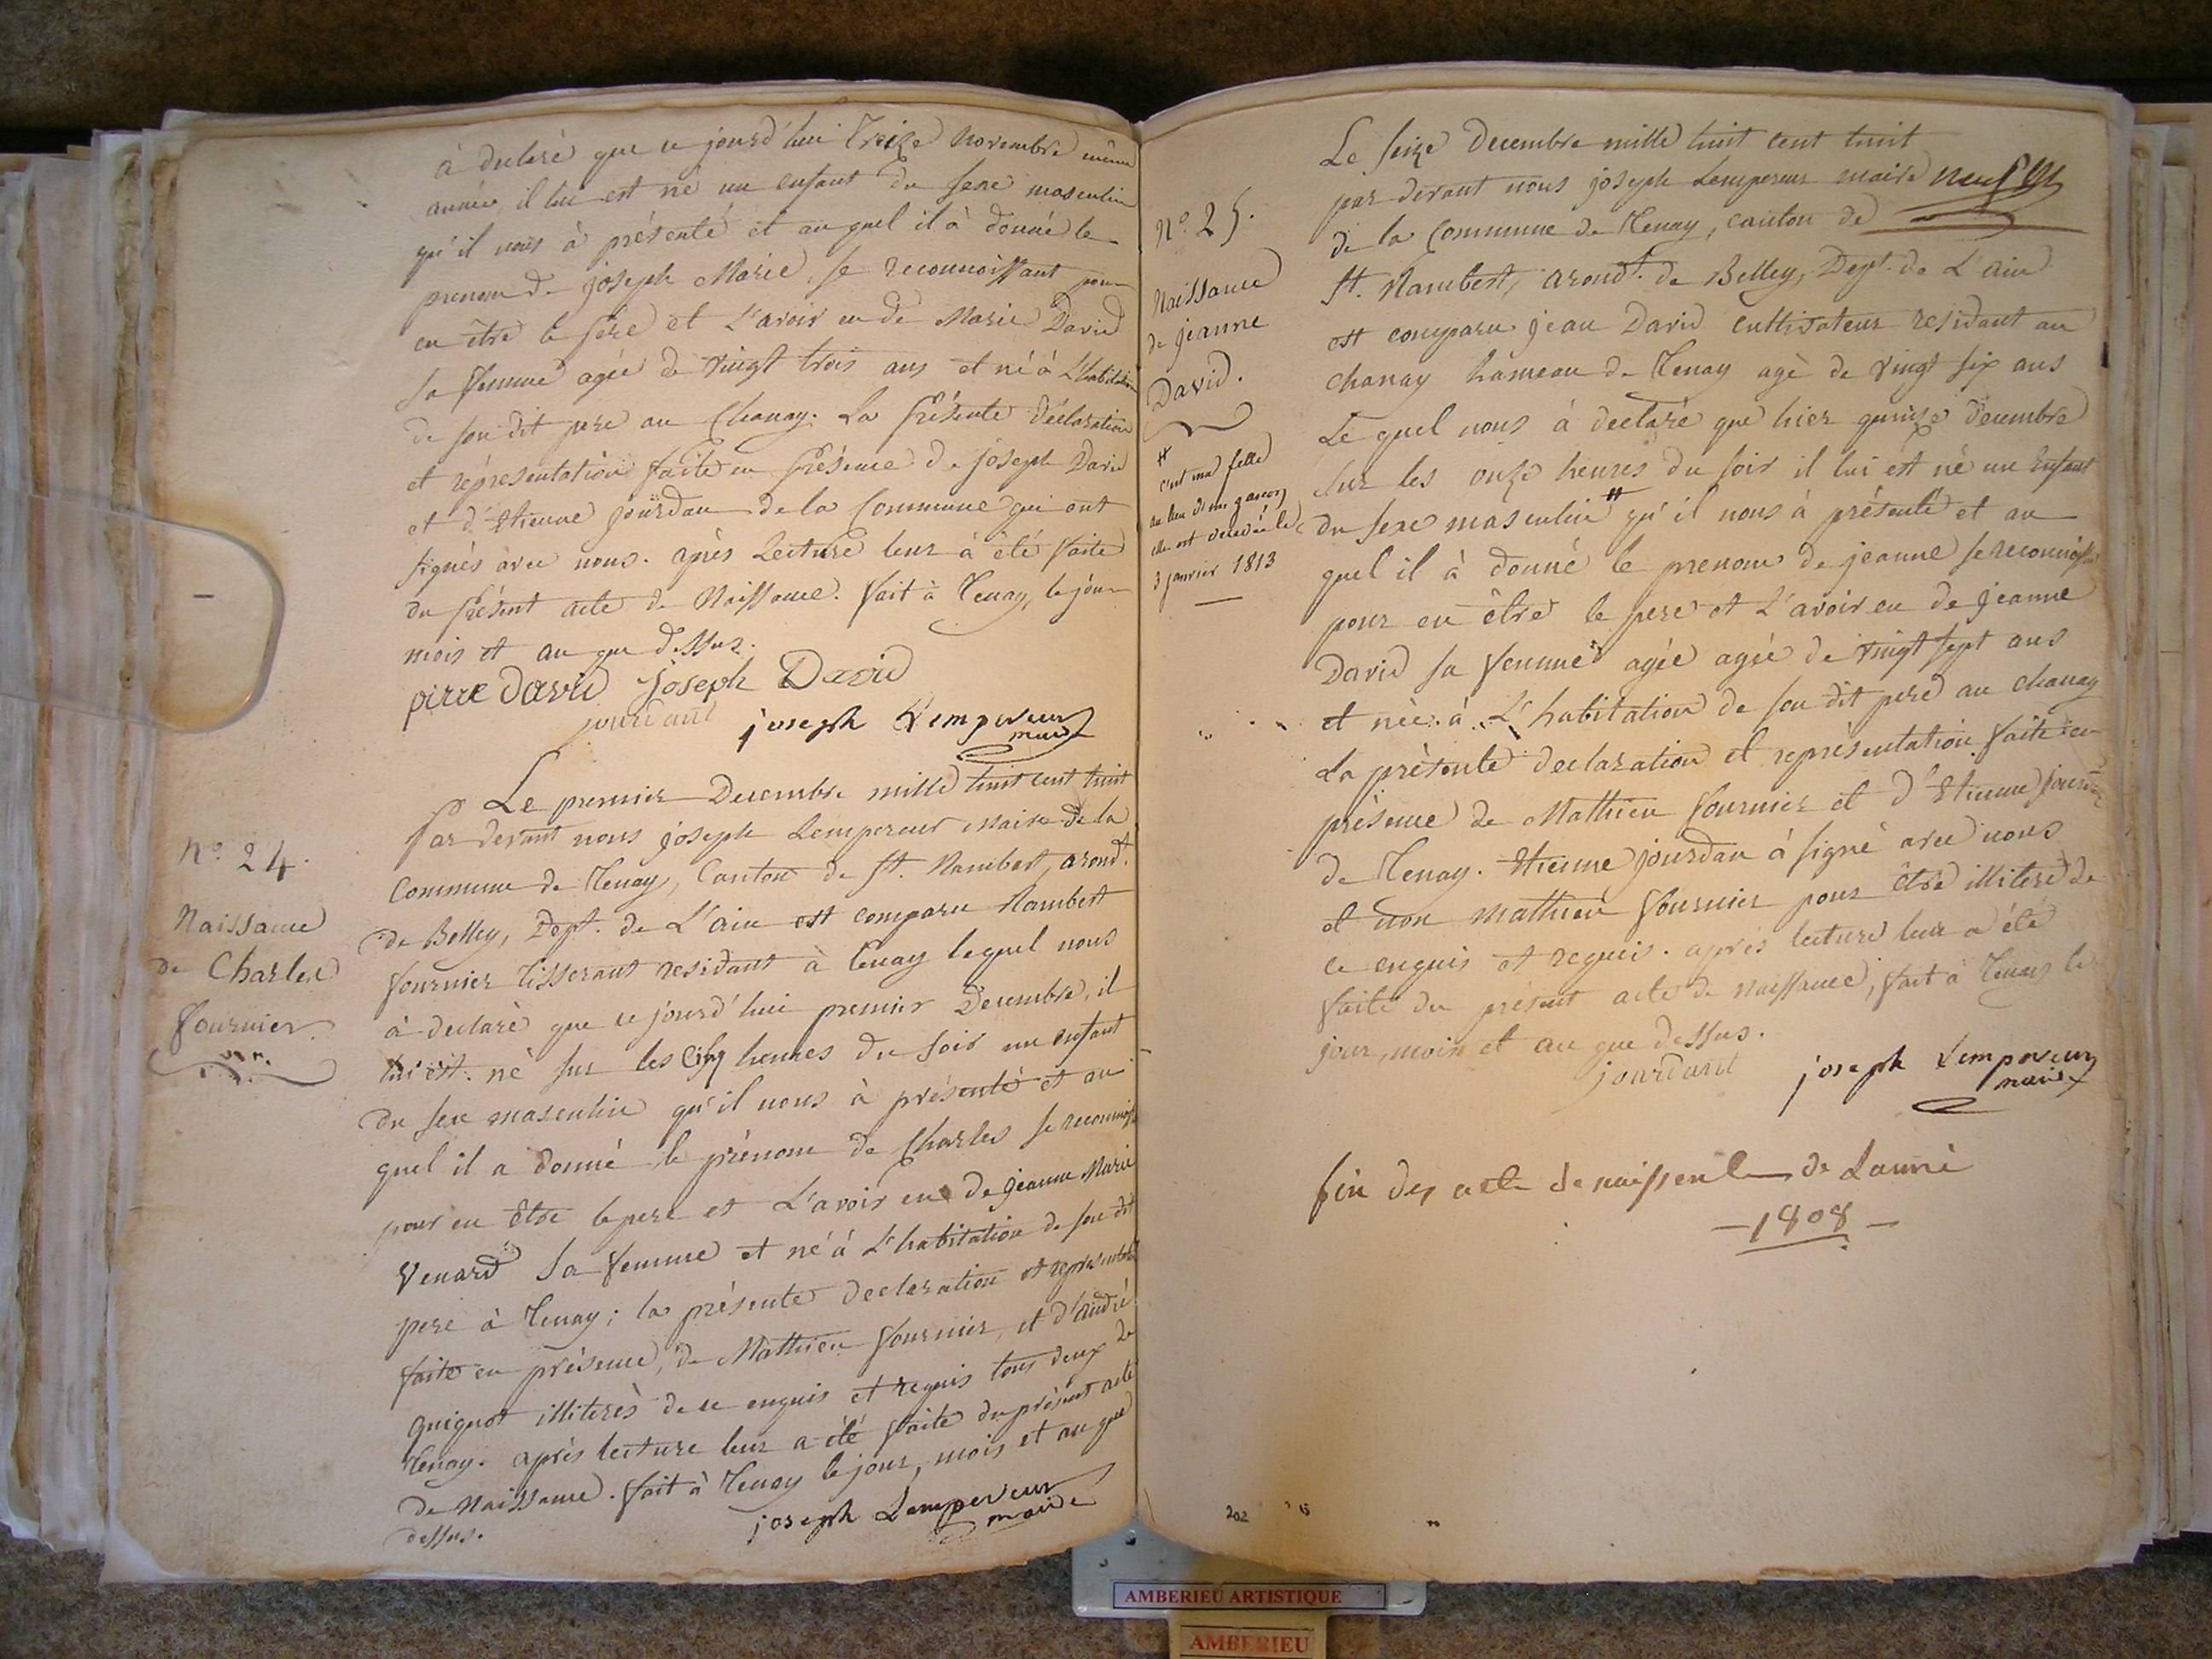 à declaré que ce jourd'hui Treize Novembre même
année, il lui est né un enfant du sexe masculin
qu'il nous à présenté et au quel il à donné le
prenom de joseph Marie, se reconnoissant pour
en être le pere et L'avoir eu de Marie David
sa femme agée de vingt trois ans et né à L'habitation
de son dit pere au Chanay. La présente Déclaration
et réprésentation faite en présence de joseph David
et d'Etienne jourdan de la Commune qui ont
signés avec nous. après Lecture leur à été faite
du présent acte de Naissance. fait à Tenay, le jour
mois et an que dessus.
pirre david joseph David
jourdant joseph Lempereur
maire
N° 24.
Naissance
de Charles
fournier
Le premier Decembre mille huit cent huit
par devant nous joseph Lempereur Maire de la
Commune de Tenay, Canton de St. Rambert, arond.t
de Belley, Dept. de L'ain est comparu Rambert
fournier tisserant residant à Tenay lequel nous
à declaré que ce jourd'hui premier Decembre, il
lui est né sur les cinq heures du soir un enfant
du sexe masculin qu'il nous à présenté et au
quel il a donné le prénom de Charles se reconnoiss
pour en être le pere et L'avoir eu de jeanne Marie
Venard sa femme et né à L'habitation de son dit
pere à Tenay; la présente declaration et representation
faite en présence, de Mathieu fournier, et d'andré
quignot illiterés de ce enquis et requis tous deux de
Tenay. après lecture leur a été faite du présent acte
de Naissance. fait à Tenay le jour, mois et an que
dessus.
joseph Lempereur
maire
N° 25.
Naissance
de jeanne
David.
#
c'est une fille
au lieu d'un garçon
elle est décédée le
3 janvier 1813
Le seize Decembre mille huit cent huit
par devant nous joseph Lempereur maire
de la Commune de Tenay, canton de
St. Rambert, arond.t de Belley, Dept. de L'ain
est comparu jean David cultivateur residant au
Chanay hameau de Tenay agé de vingt six ans
Le quel nous à declaré que hier quinze decembre
sur les onze heures du soir il lui est né un Enfant
du sexe masculin # qu'il nous à présenté et au
quel il à donné le prenom de jeanne se reconnoiss
pour en être le pere et L'avoir eu de jeanne
David sa femme agée agée de vingt sept ans
et née à L'habitation de son dit pere au chanay
La présente declaration et représentation faite en
présence de Mathieu fournier et d'Etienne jourdan
de Tenay. Etienne jourdan à signé avec nous
et non mathieu fournier pour être illiteré de
ce enquis et requis. après lecture leur a été
faite du présent acte de naissance, fait à Tenay le
jour, mois et an que dessus.
jourdant joseph Lempereur
maire
fin des acte de naissence de Lanné
— 1808 —
202
AMBERIEU ARTISTIQUE
AMBERIEU